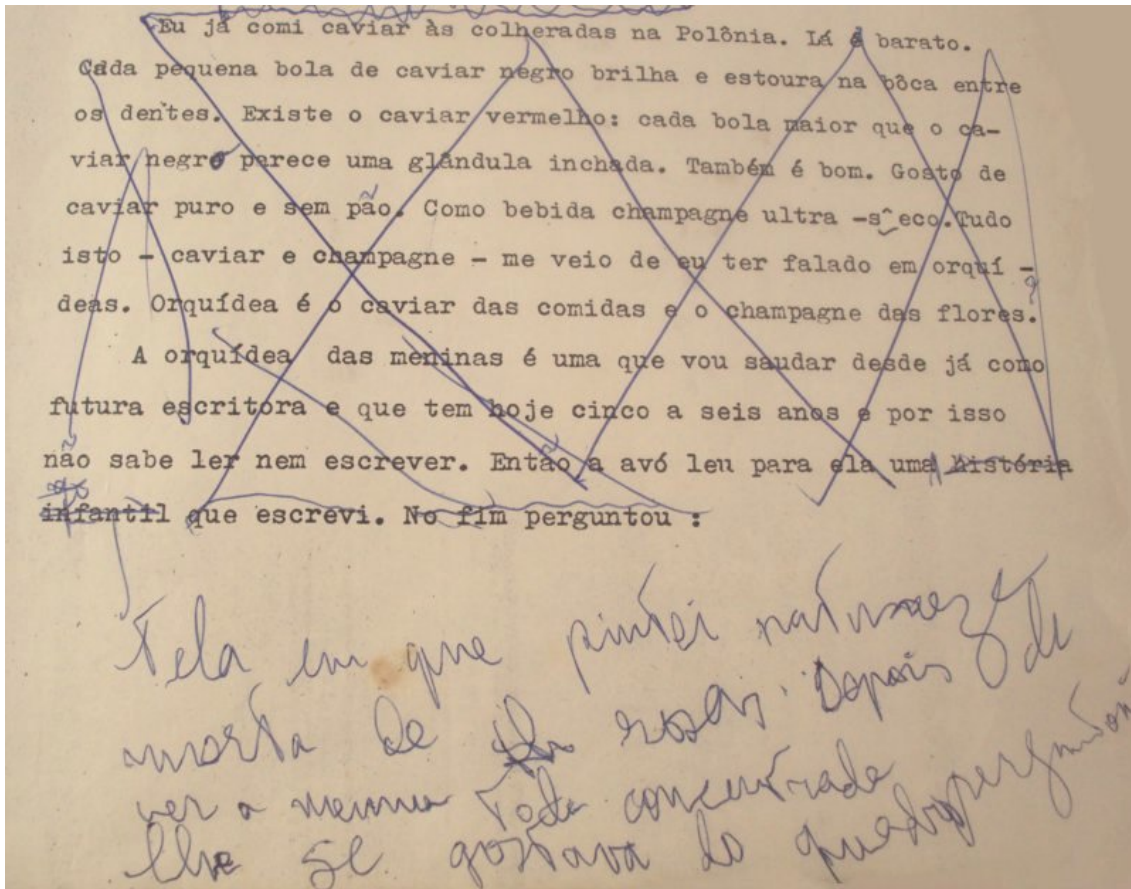 Eu já comi caviar às colheradas na Polônia. Lá é barato.
Cada pequena bola de caviar negro brilha e estoura na bôca entre
os dentes. Existe o caviar vermelho: cada bola maior que o ca-
viar negro parece uma glândula inchada. Também é bom. Gosto de
caviar puro e sem pão. Como bebida champagne ultra -sêco.Tudo
isto - caviar e champagne - me veio de eu ter falado em orquí -
deas. Orquídea é o caviar das comidas e o champagne das flores.
A orquídea das meninas é uma que vou saudar desde já como
futura escritora e que tem hoje cinco a seis anos e por isso
não sabe ler nem escrever. Então a avó leu para ela uma história
infantil que escrevi. No fim perguntou :
Tela em que pintei natureza
morta de rosas. Depois de
ver a menina toda concentrada
lhe se gostava do quadro